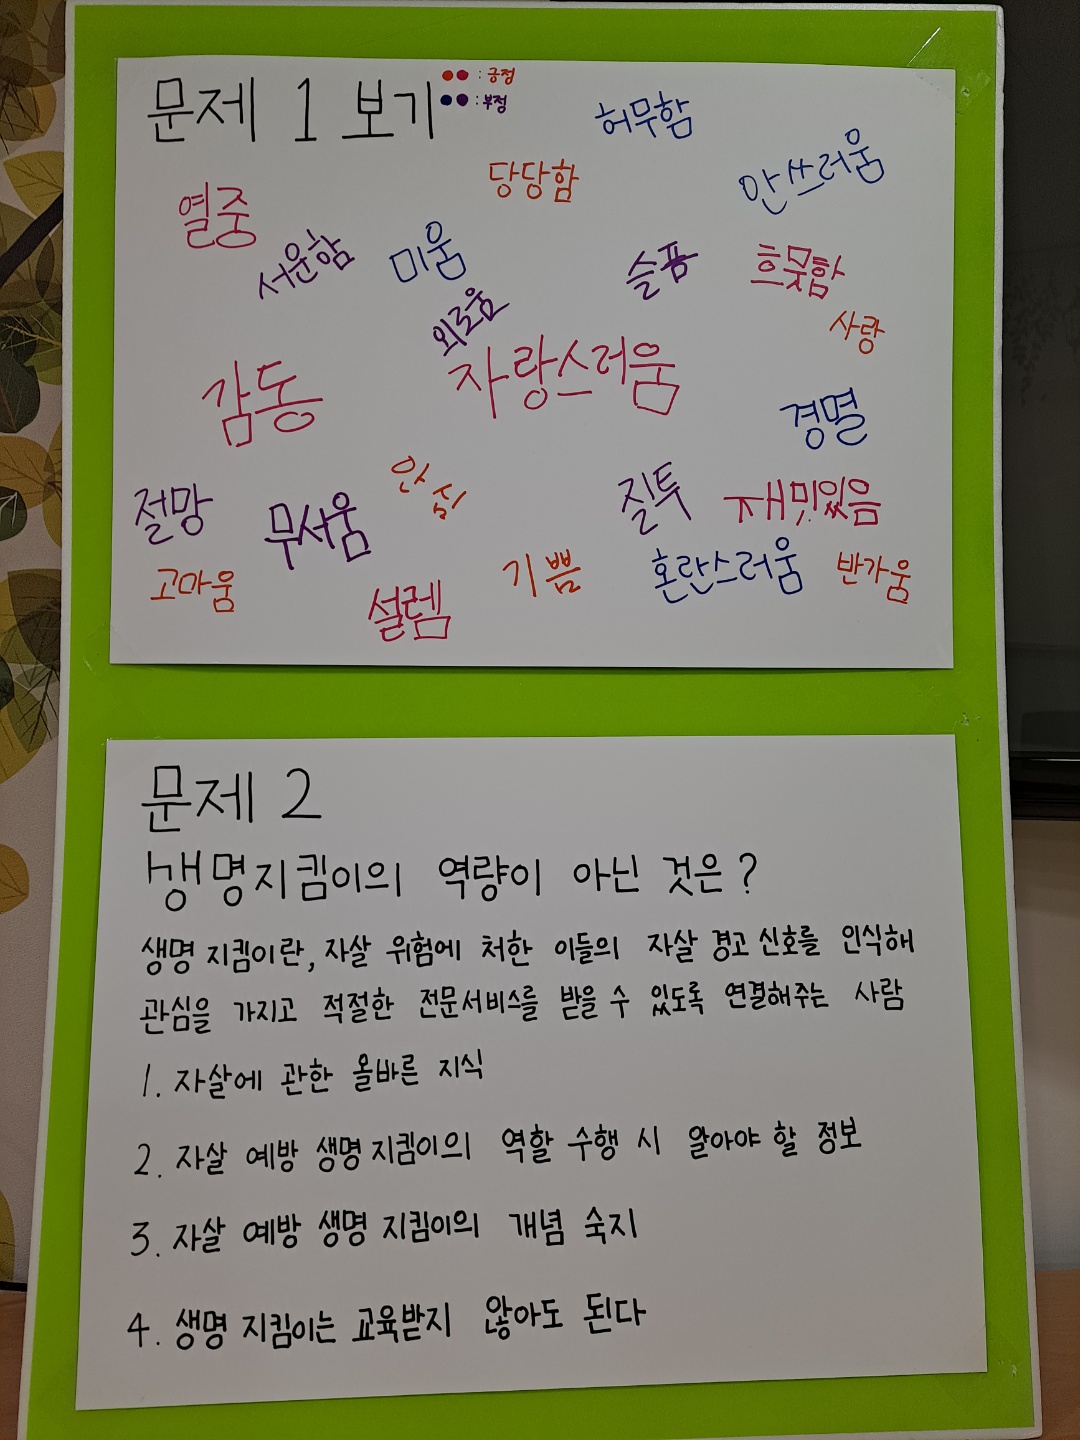 문제 1 보기
: 긍정
: 부정
허무함
당당함
안쓰러움
열중
서운함
미움
슬픔
흐뭇함
외로움
사랑
자랑스러움
감동
경멸
안심
절망
무서움
질투
재밌있음
고마움
설렘
기쁨
혼란스러움
반가움
문제 2
생명지킴이의 역량이 아닌 것은?
생명 지킴이란, 자살 위험에 처한 이들의 자살 경고 신호를 인식해
관심을 가지고 적절한 전문서비스를 받을 수 있도록 연결해주는 사람
1. 자살에 관한 올바른 지식
2. 자살 예방 생명 지킴이의 역할 수행 시 알아야 할 정보
3. 자살 예방 생명 지킴이의 개념 숙지
4. 생명 지킴이는 교육받지 않아도 된다